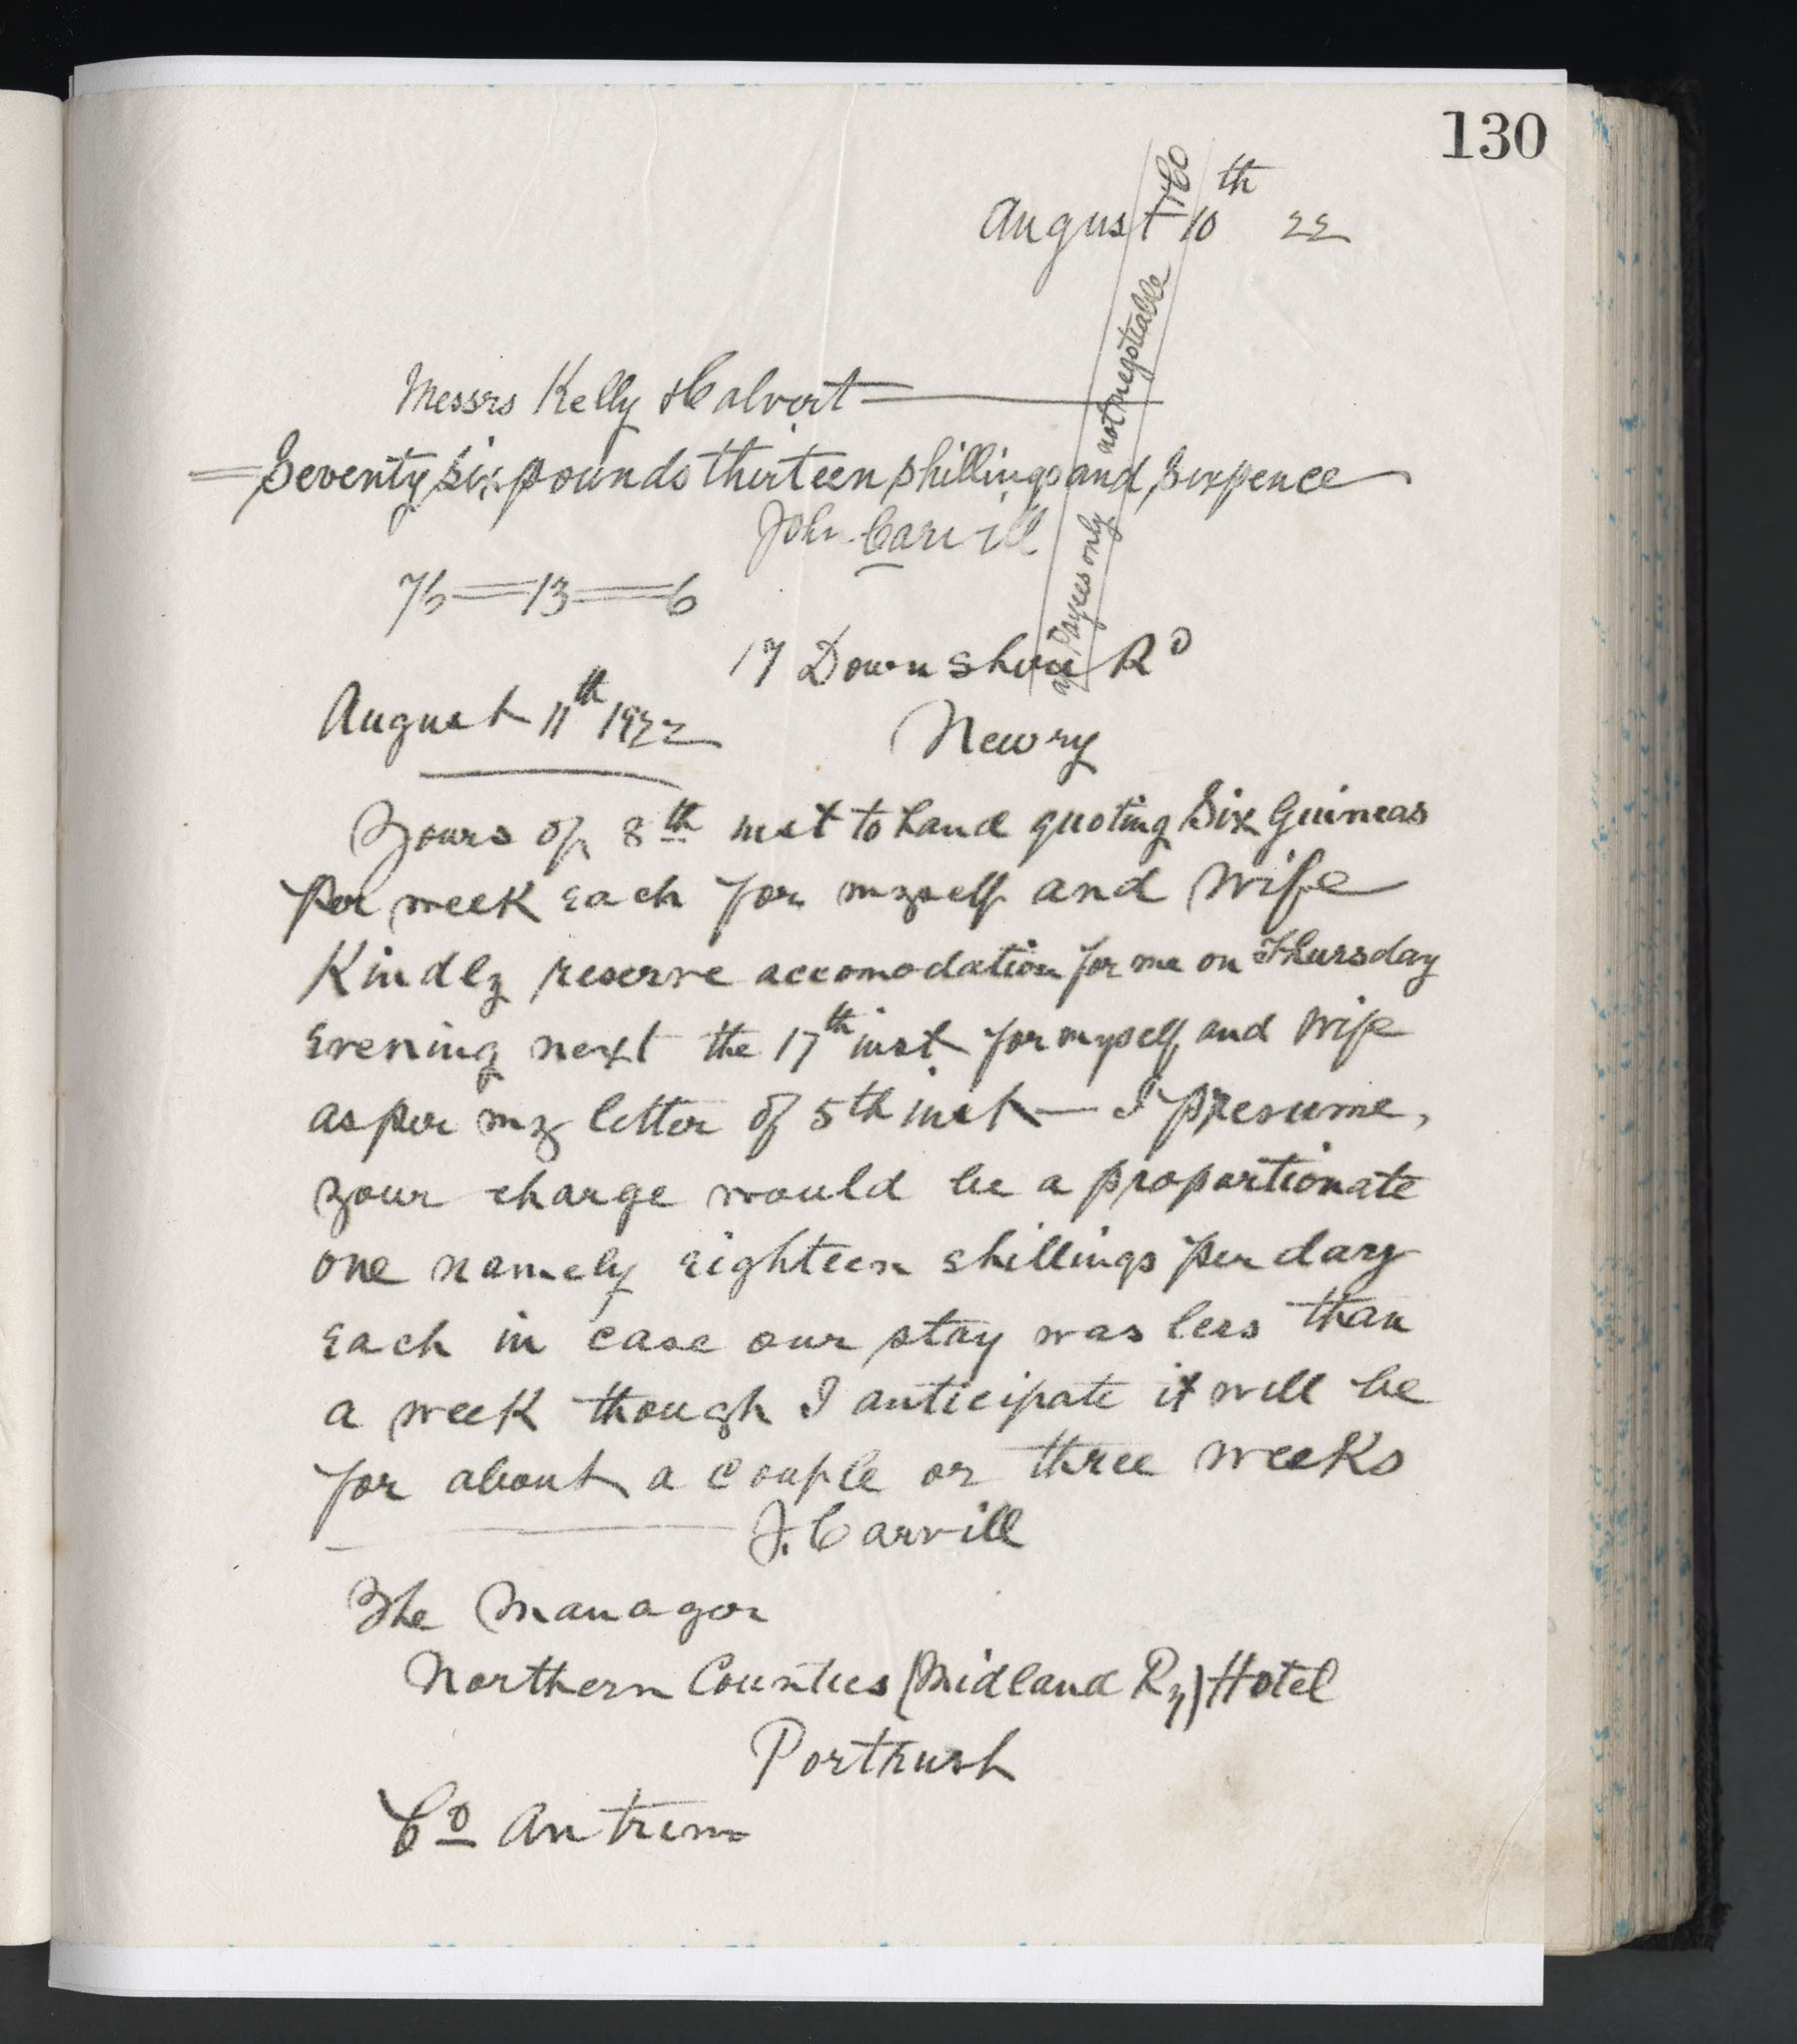 130
August 10th 22
& Co
not negotiable
a/c Payees only
Messrs Kelly & Calvert
Seventy six pounds thirteen shillings and sixpence
John Carvill
76 = 13 = 6
17 Downshire Rd
August 11th 1922
Newry
Yours of 8th inst to hand quoting Six Guineas
per week each for myself and wife
Kindly reserve accomodation for me on Thursday
evening next the 17th inst for myself and wife
as per my letter of 5th inst — I presume,
your charge would be a proportionate
one namely eighteen shillings per day
each in case our stay was less than
a week though I anticipate it will be
for about a couple or three weeks
J. Carvill
The Manager
Northern Counties (Midland Ry) Hotel
Portrush
Co Antrim